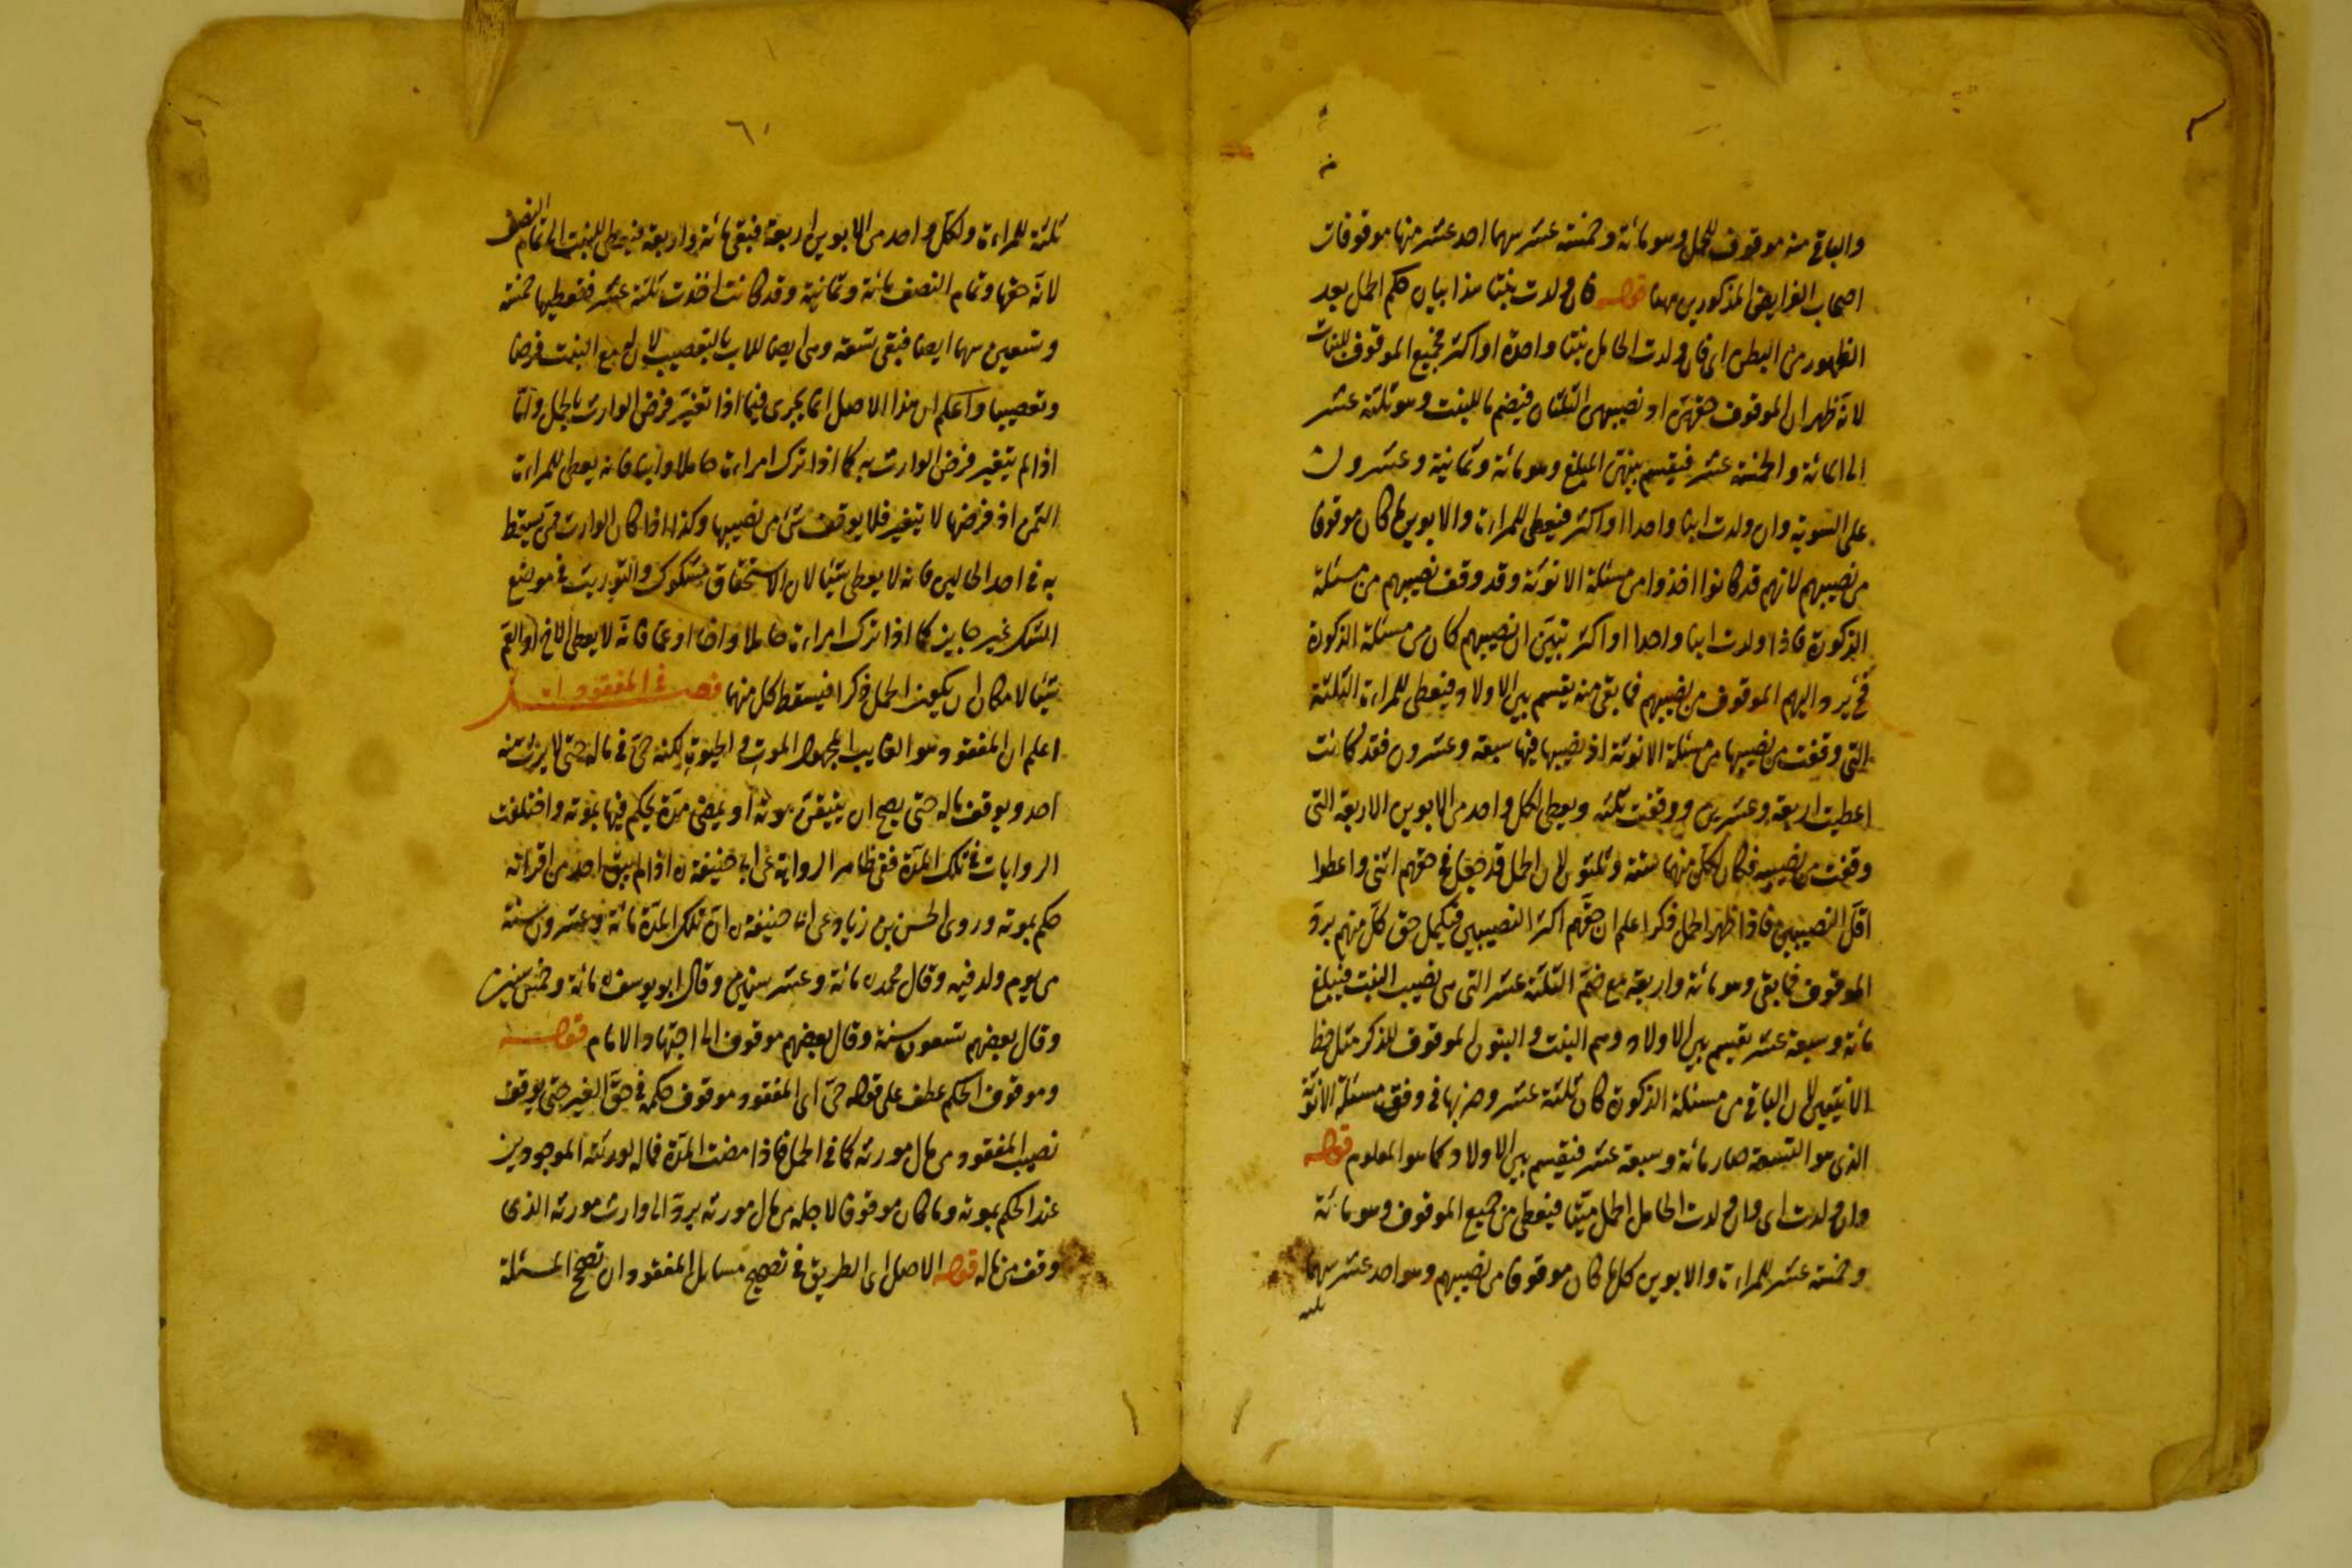 والباقى منه موقوف للحمل وهو مائة وخمسة عشر سهما احد عشر منها موقوفات
اصحاب الفرايض المذكورين مهنا قوله فان ولدت بنتا هذا بيان حكم الحمل بعد
الظهور من البطن اى فان ولدت الحامل بنتا واحدة او اكثر فجميع الموقوف للبنات
لانه ظهر ان الموقوف حقهن اذ نصيبهن الثلثان فيضم ما للبنت وهو ثلثة عشر
الى المائة والخمسة عشر فيقسم بينهن المبلغ وهو مائة وثمانية وعشرون
على السوية وان ولدت ابنا واحدا او اكثر فيعطى للمراءة والابوين ما كان موقوفا
من نصيبهم لانهم قد كانوا اخذوا من مسئلة الانوثة وقد وقف نصيبهم من مسئلة
الذكورة فاذا ولدت ابنا واحدا او اكثر تبين ان نصيبهم كان من مسئلة الذكورة
فح يرد اليهم الموقوف من نصيبهم فما بقى منه يقسم بين الاولاد فيعطى للمراءة الثلثة
التى وقفت من نصيبها من مسئلة الانوثة اذ نصيبها فيها سبعة وعشرون فقد كانت
اعطيت اربعة وعشرين ووقفت ثلثة ويعطى لكل واحد من الابوين الاربعة التى
وقفت من نصيبه فكان لكل منهما ستة وثلثون لان الحمل قد جعل فى حقهم انثى واعطوا
اقل النصيبين فاذا ظهر الحمل ذكرا علم ان حقهم اكثر النصيبين فيكمل حق كل منهم برد
الموقوف فما بقى وهو مائة واربعة مع ضم الثلثة عشر التى من نصيب البنت فيبلغ
مائة وسبعة عشر يقسم بين الاولاد وهم البنت والبنون الموقوف للذكر مثل حظ
الانثيين لان الباقى من مسئلة الذكورة كان ثلثة عشر وضربها فى وفق مسئلة الانوثة
الذى هو التسعة صار مائة وسبعة عشر فيقسم بين الاولاد كما هو المعلوم قوله
وان ولدت اى وان ولدت الحامل الحمل ميتا فيعطى من جميع الموقوف وهو مائة
وخمسة عشر للمراءة والابوين كل ما كان موقوفا من نصيبهم وهو احد عشر سهما
ثلثة
٦١
ثلثة للمراءة ولكل واحد من الابوين اربعة فبقى مائة واربعة فيعطى للبنت الى تمام النصف
لانه حقها وتمام النصف مائة وثمانية وقد كانت اخذت ثلثة عشر فتعطيها خمسة
وتسعين سهما ايضا فبقى تسعة وهى ايضا للاب بالتعصيب لان له مع البنت فرضا
وتعصيبا واعلم ان هذا الاصل انما يجرى فيما اذا تغير فرض الوارث بالحمل واما
اذا لم يتغير فرض الوارث به كما اذا ترك امراءة حاملا وابنا فانه يعطى للمراءة
الثمن اذ فرضها لا يتغير فلا يوقف شئ من نصيبها وكذا اذا كان الوارث ممن يسقط
به فى احد الحالين فانه لا يعطى شيئا لان الاستحقاق مشكوك والتوريث فى موضع
الشك غير جايز كما اذا ترك امراءة حاملا واخا او عما فانه لا يعطى الاخ او العم
شيئا لامكان ان يكون الحمل ذكرا فيسقط كل منهما فصل فى المفقود
اعلم ان المفقود هو الغايب المجهول الموت والحيوة لكنه حى فى ماله حتى لا يرث منه
احد ويوقف ماله حتى يصح ان يتيقن موته او يمضى مدة يحكم فيها بموته واختلفت
الروايات فى تلك المدة ففى ظاهر الرواية عن ابى حنيفة ره اذا لم يبق احد من اقرانه
حكم بموته وروى الحسن بن زياد عن ابى حنيفة ره ان تلك المدة مائة وعشرون سنة
من يوم ولد فيه وقال محمد ره مائة وعشر سنين وقال ابو يوسف ره مائة وخمس سنين
وقال بعضهم تسعون سنة وقال بعضهم موقوف الى اجتهاد الامام قوله
وموقوف الحكم عطف على قوله حى اى المفقود موقوف حكمه فى حق الغير حتى يوقف
نصيب المفقود من مال مورثه كما فى الحمل فاذا مضت المدة فماله لورثته الموجودين
عند الحكم بموته وما كان موقوفا لاجله من مال مورثه يرد الى وارث مورثه الذى
وقف من ماله قوله الاصل اى الطريق فى تصحيح مسايل المفقود ان تصحح المسئلة